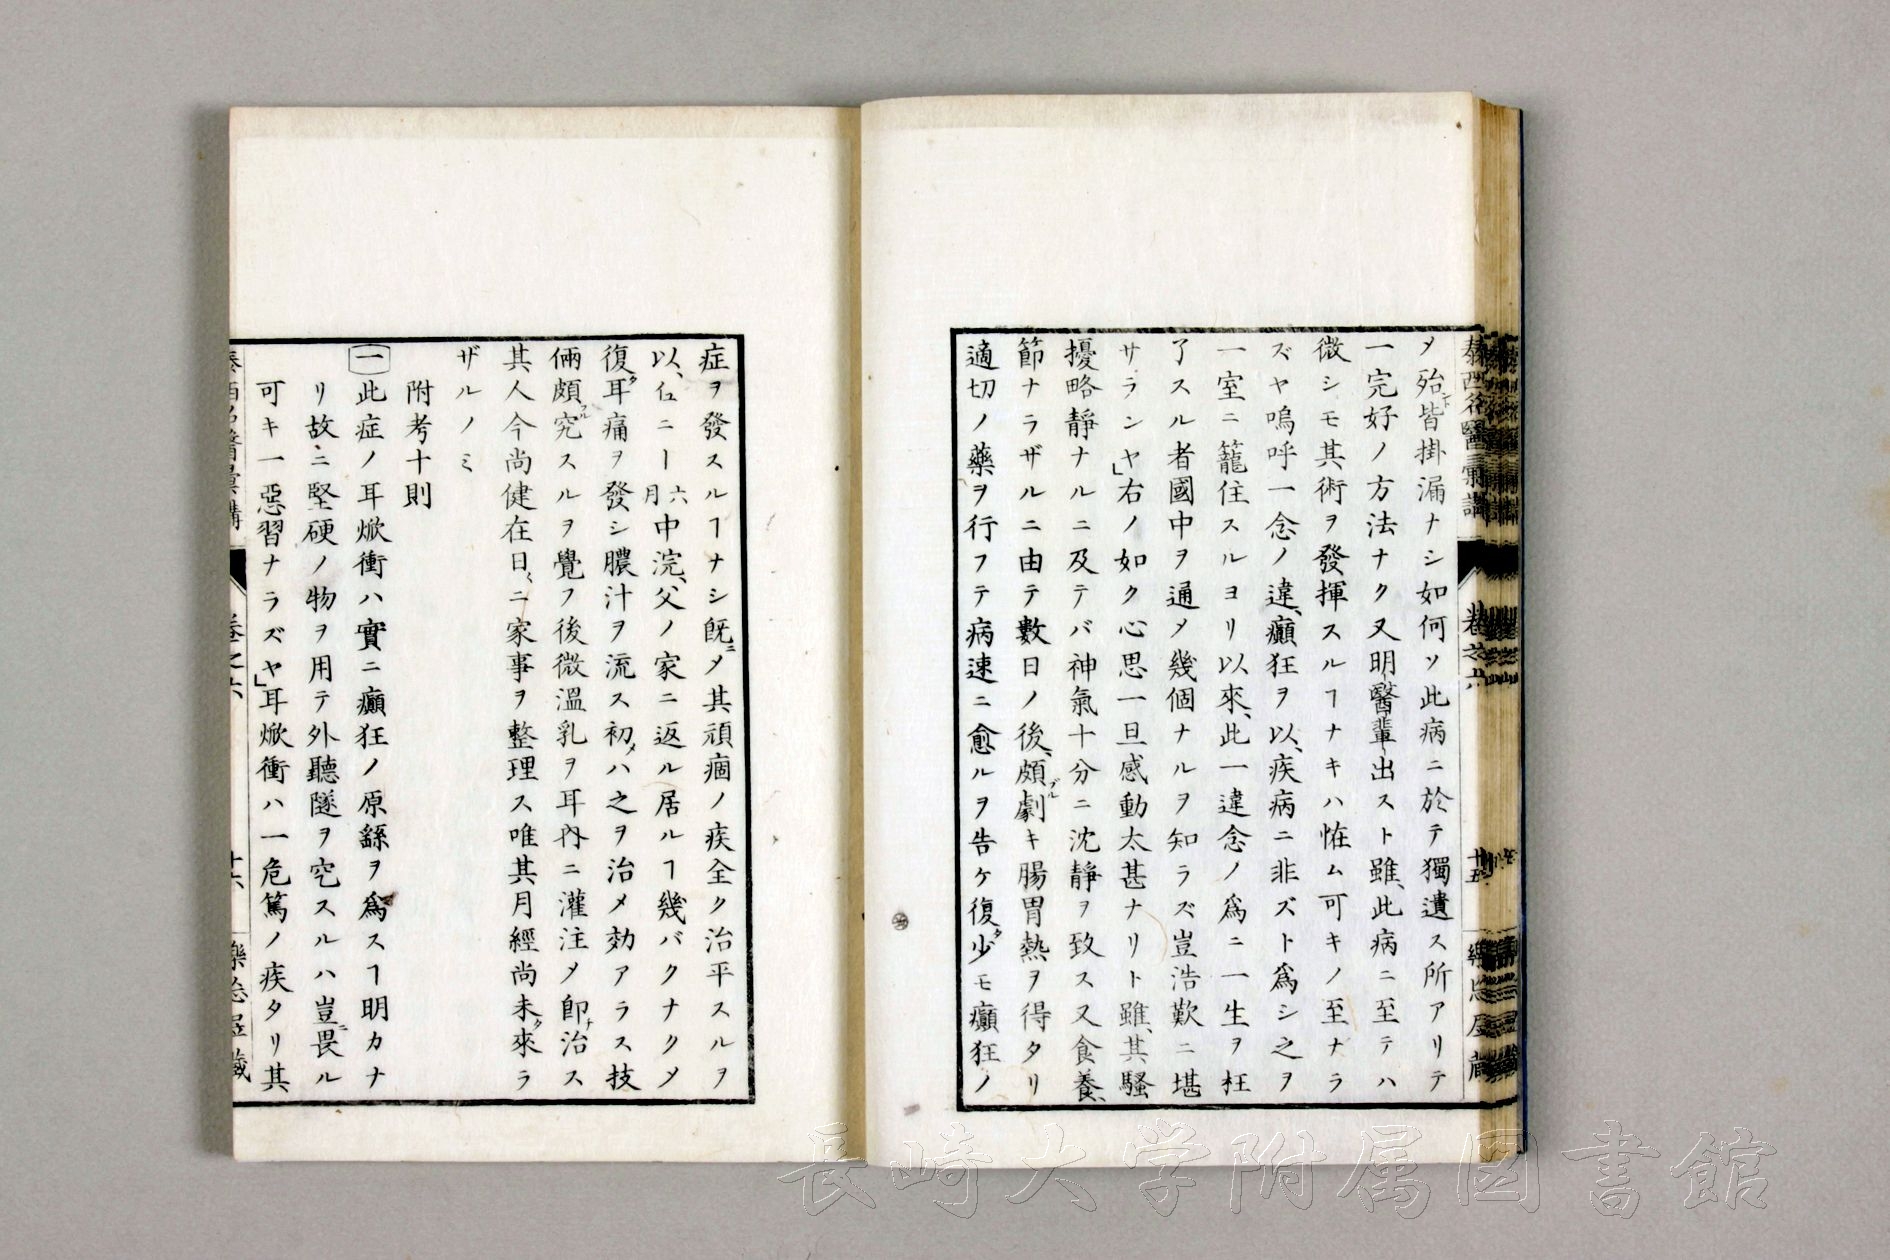 メ殆ド皆掛漏ナシ如何ソ此病ニ於テ獨遺ス所アリテ
一完好ノ方法ナク又明醫輩出スト雖、此病ニ至テハ
微シモ其術ヲ發揮スルヿナキハ恠ム可キノ至ナラ
ズヤ嗚呼一念ノ違、癲狂ヲ以、疾病ニ非ズト爲シ之ヲ
一室ニ籠住スルヨリ以來、此一違念ノ爲ニ一生ヲ枉
了スル者國中ヲ通メ幾個ナルヲ知ラズ豈浩歎ニ堪
サランヤ」右ノ如ク心思一旦感動太甚ナリト雖、其騷
擾略靜ナルニ及テバ神氣十分ニ沈靜ヲ致ス又食養、
節ナラザルニ由テ數日ノ後、頗ブル劇キ腸胃熱ヲ得タリ
適切ノ藥ヲ行フテ病速ニ愈ルヲ告ケ復タ少モ癲狂ノ
泰西名醫彙講 卷之六 十五
症ヲ發スルヿナシ既ニメ其頑痼ノ疾全ク治平スルヲ
以、仁ニー六月中浣、父ノ家ニ返ル居ルヿ幾バクナクメ
復タ耳痛ヲ發シ膿汁ヲ流ス初メハ之ヲ治メ効アラス技
倆頗ブル究スルヲ覺フ後微溫乳ヲ耳內ニ灌注メ卽チ治ス
其人今尚健在日〻ニ家事ヲ整理ス唯其月經尚未タ來ラ
ザルノミ
附考十則
一 此症ノ耳焮衝ハ實ニ癲狂ノ原繇ヲ爲スヿ明カナ
リ故ニ堅硬ノ物ヲ用テ外聽隧ヲ穵スルハ豈ニ畏ル
可キ一惡習ナラズヤ」耳焮衝ハ一危篤ノ疾タリ其
泰西名醫彙講 卷之六 十六
長崎大学附属図書館